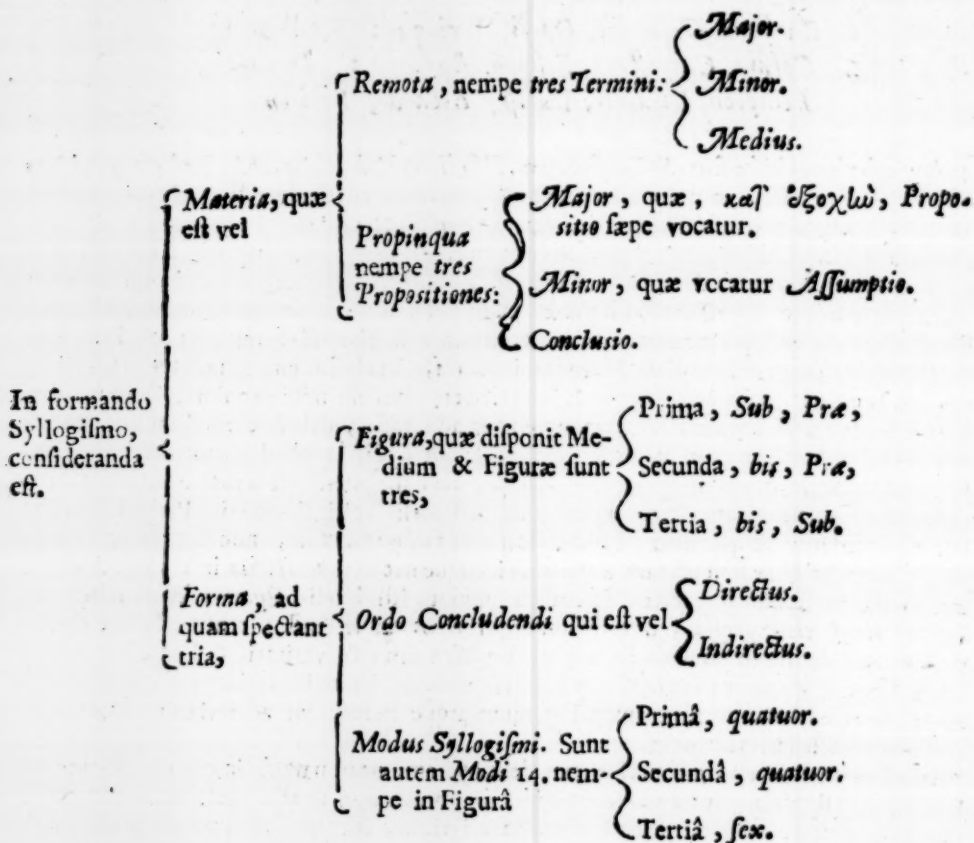 In formando
Syllogiſmo,
conſideranda
eſt.
Materia, quæ
eſt vel
Remota, nempe tres Termini:
Major.
Minor.
Medius.
Propinqua
nempe tres
Propoſitiones:
Major, quæ, κατ' ἐξοχὴν, Propo-
ſitio ſæpe vocatur.
Minor, quæ vocatur Aſſumptio.
Concluſio.
Forma, ad
quam ſpectant
tria,
Figura, quæ diſponit Me-
dium & Figuræ ſunt
tres,
Prima, Sub, Præ,
Secunda, bis, Præ,
Tertia, bis, Sub.
Ordo Concludendi qui eſt vel
Directus.
Indirectus.
Modus Syllogiſmi. Sunt
autem Modi 14. nem-
pe in Figurâ
Primâ, quatuor.
Secundâ, quatuor.
Tertiâ, ſex.